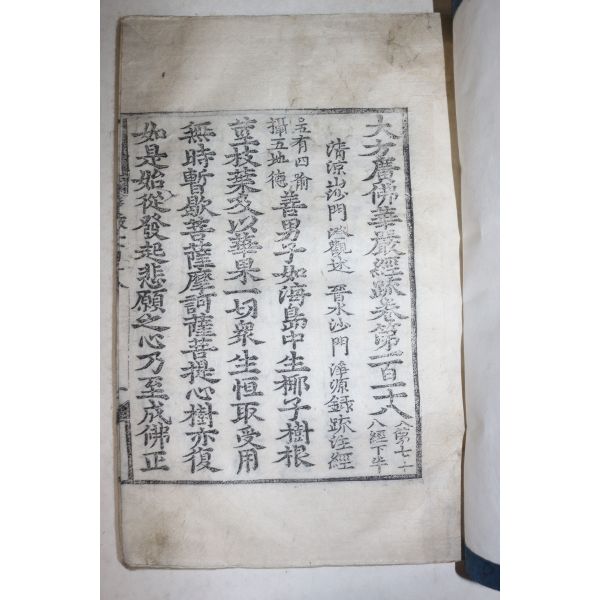 大方廣佛華嚴經疏卷第一百一十八
入第七十
八經下半
清涼山沙門 澄觀述 晉水沙門 淨源錄疏注經
五有四喻
攝五地德
善男子如海島中生椰子樹根
莖枝葉及以華果一切衆生恒取受用
無時暫歇菩薩摩訶薩菩提心樹亦復
如是始從發起悲願之心乃至成佛正